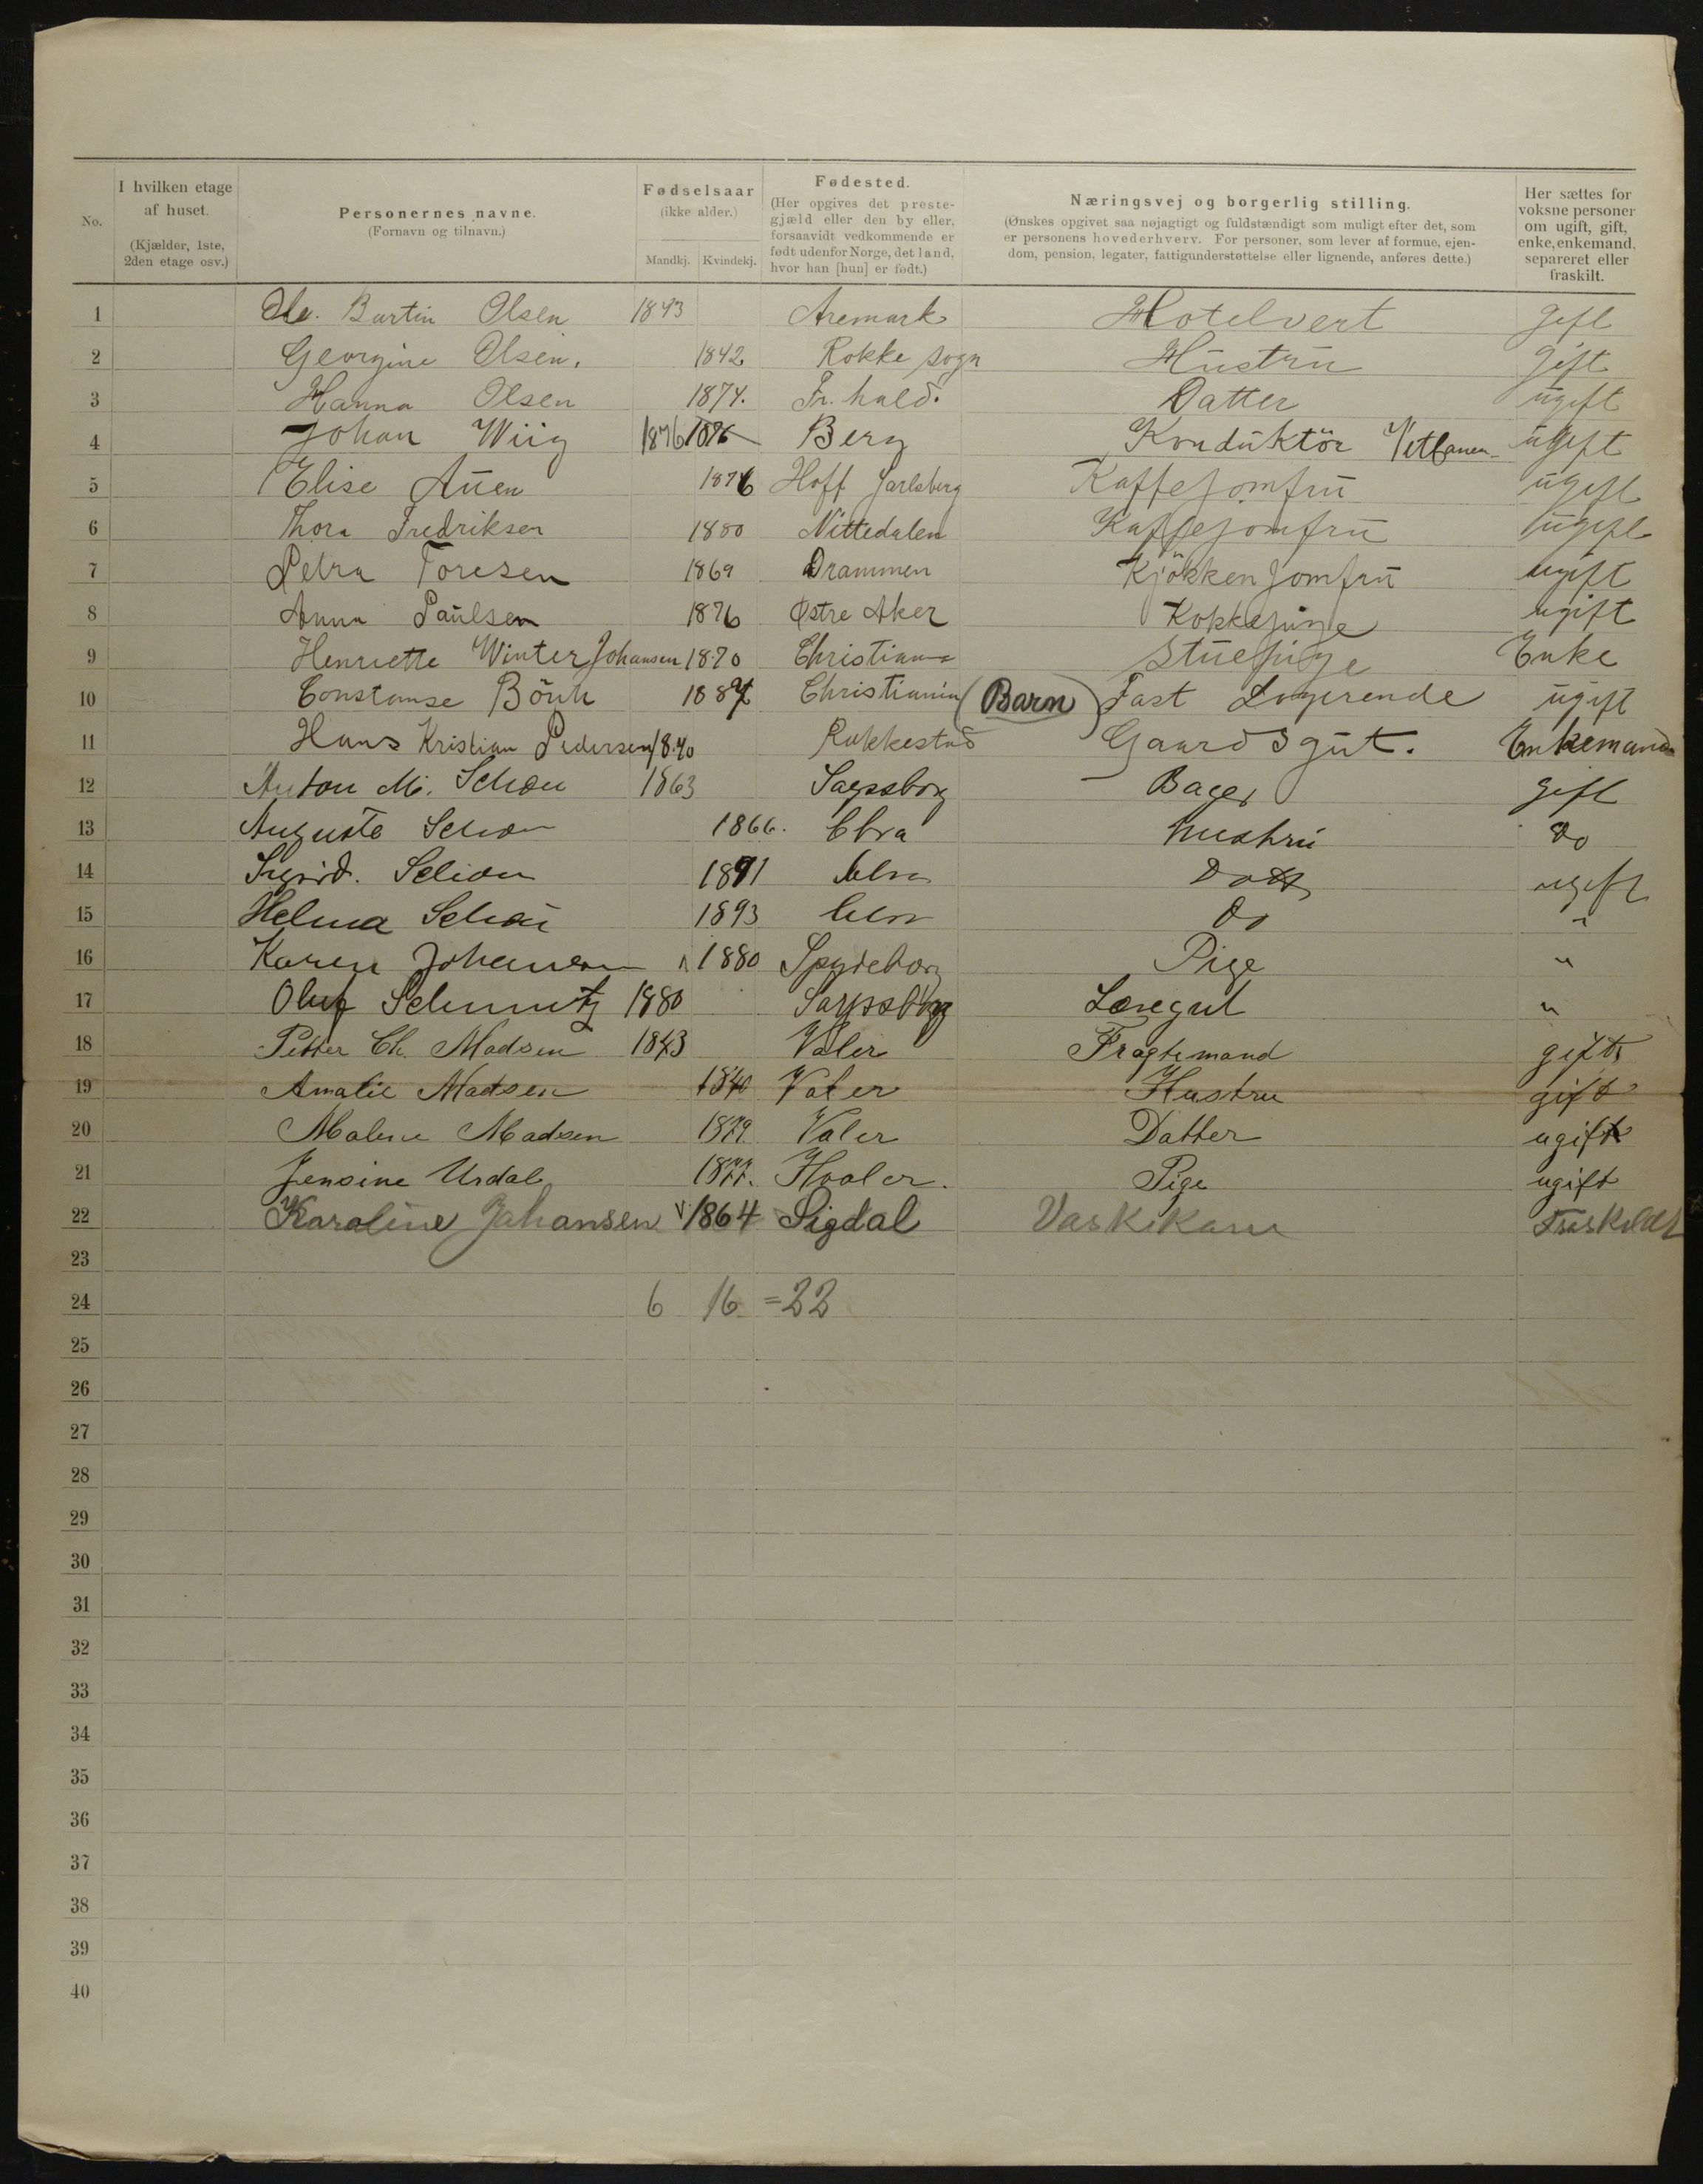 No. I hvilken etage af huset. (Kjælder, 1ste, 2den etage osv.) Personernes navne. (Fornavn og tilnavn.) Fødselsaar (ikke alder.) Mandkj. Kvindekj. Fødested. (Her opgives det prestegjæld eller den by eller, forsaavidt vedkommende er født udenfor Norge, det land, hvor han [hun] er født.) Næringsvej og borgerlig stilling. (Ønskes opgivet saa nøjagtigt og fuldstændigt som muligt efter det, som er personens hovederhverv. For personer, som lever af formue, ejendom, pension, legater, fattigunderstøttelse eller lignende, anføres dette.) Her sættes for voksne personer om ugift, gift, enke, enkemand, separeret eller fraskilt.
1 Ole. Bartin Olsen 1843 Aremark Hotelvert gift
2 Georgine Olsen. 1842 Rokke sogn Hustru gift
3 Hanna Olsen 1874. Fr.hald. Datter ugift
4 Johan Wiig 1876 1876 Berg Konduktör ugift
5 Elise Auen 1876 Hoff Jarlsberg Kaffejomfru ugift
6 Thora Fredriksen 1880 Nittedalen Kaffejomfru ugift
7 Petra Toresen 1869 Drammen Kjökkenjomfru ugift
8 Anna Paulsen 1876 Østre Aker Kokkepige ugift
9 Henriette Winter Johansen 1870 Christiania Stuepige Enke
10 Constanse 1887 Christiania (Barn) Fast Logerende ugift
11 Hans Kristian Pedersen 1840 Rakkestad Gaardsgut. Enkemand
12 Anton M. Schou 1863 Sarpsborg Bager gift
13 Auguste Schou 1866. Chra Hustru Do
14 Sigrid. Schou 1891 Chra Datt ugift
15 Helma Schou 1893 Chra Do "
16 Karen Johansen 1880 Spydeborg Pige "
17 Oluf Schmutz 1880 Sarpsborg Læregut "
18 Petter Ch. Madsen 1843 Valer Fragtemand gift
19 Amalie Madsen 1840 Valer Hustru gift
20 Malene Madsen 1879. Valer Datter ugift
21 Jensine Urdal 1877. Hvaler. Pige ugift
22 Karoline Johansen 1864 Sigdal Vaskikane Fraskildt
23
24 6 16 = 22
25
26
27
28
29
30
31
32
33
34
35
36
37
38
39
40